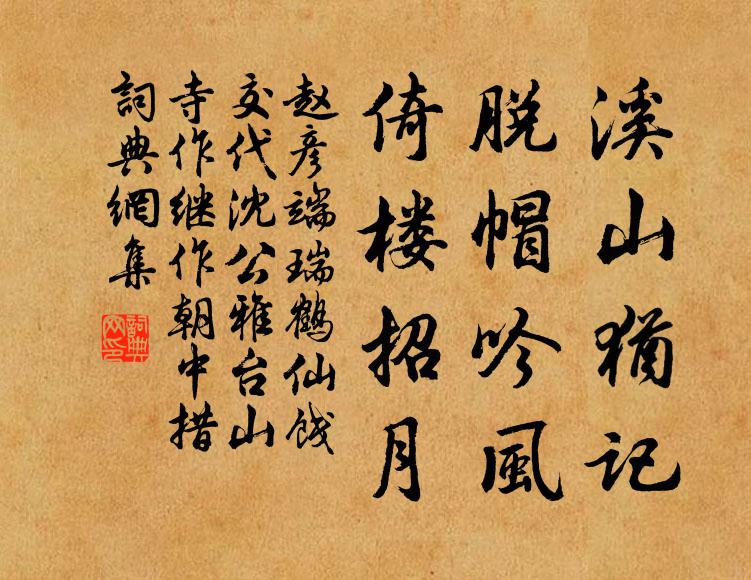 溪山猶记
脱帽吟風
倚楼招月
赵彦端瑞鶴仙饯
交代沈公雅台山
寺作继作朝中措
詞典網集
詞典
网印